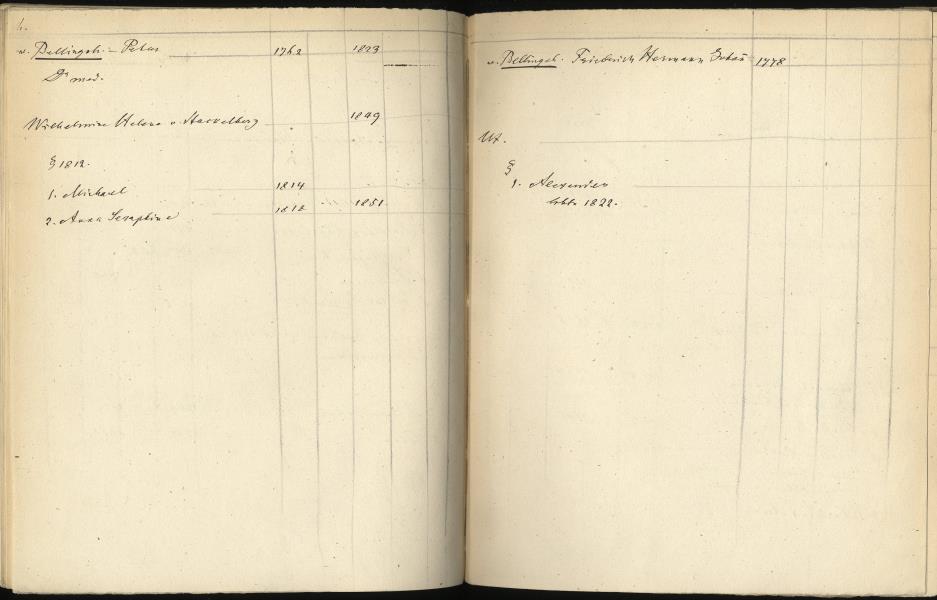 v. Bellingsh. - Peter 1762 1823
Dr med.
Wilhelmine Helene v. Stackelberg 1849
§ 1812.
1. Michael 1814
2. Anna Seraphine 1812 1851
v. Bellingsh. Friederich Hermann 1778
Ux.
§
1. Alexander
lebte 1822.